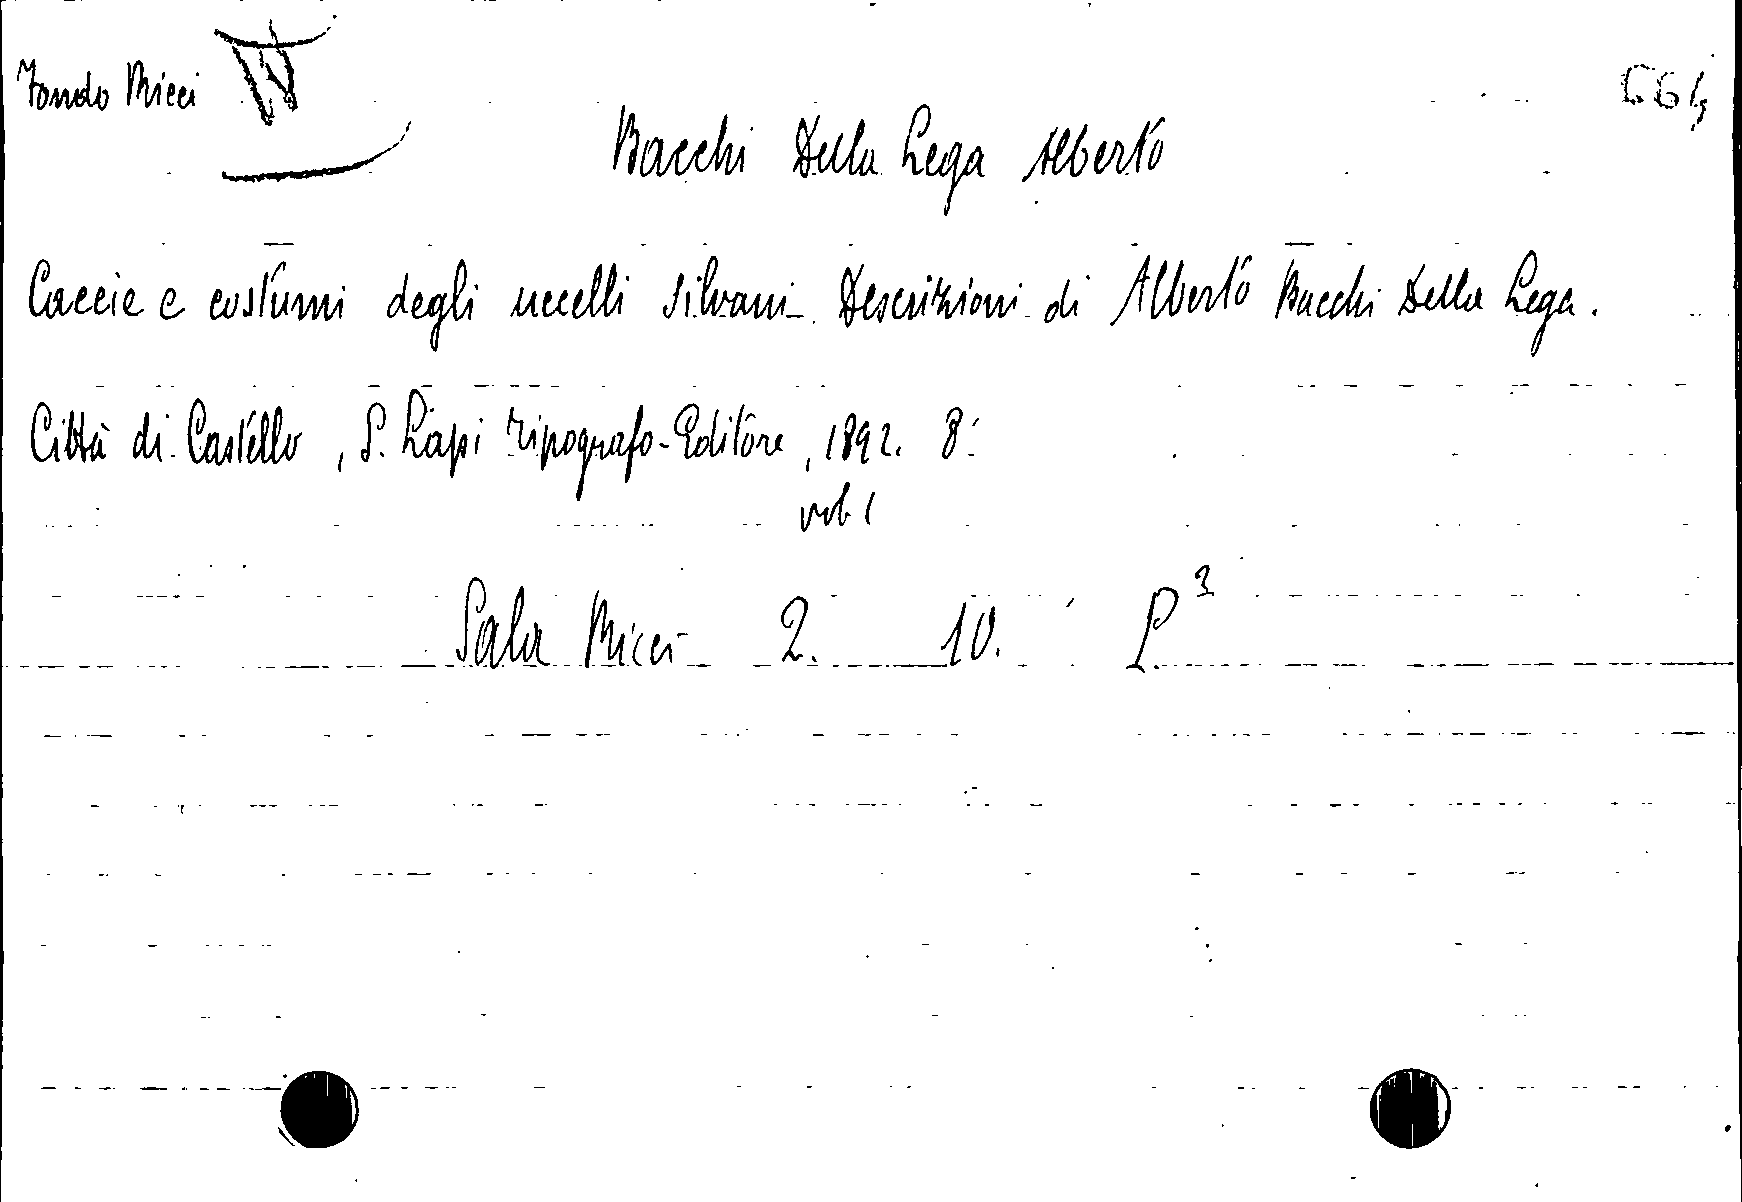 Fondo Ricci IV 664
Bacchi Della Lega Alberto
Caccie e costumi degli uccelli silvani. Descrizioni di Alberto Bacchi Della Lega.
Città di Castello, S. Lapi Tipografo-Editore, 1892. 8°.
vol. 1
Sala Ricci 2. 10. P.3